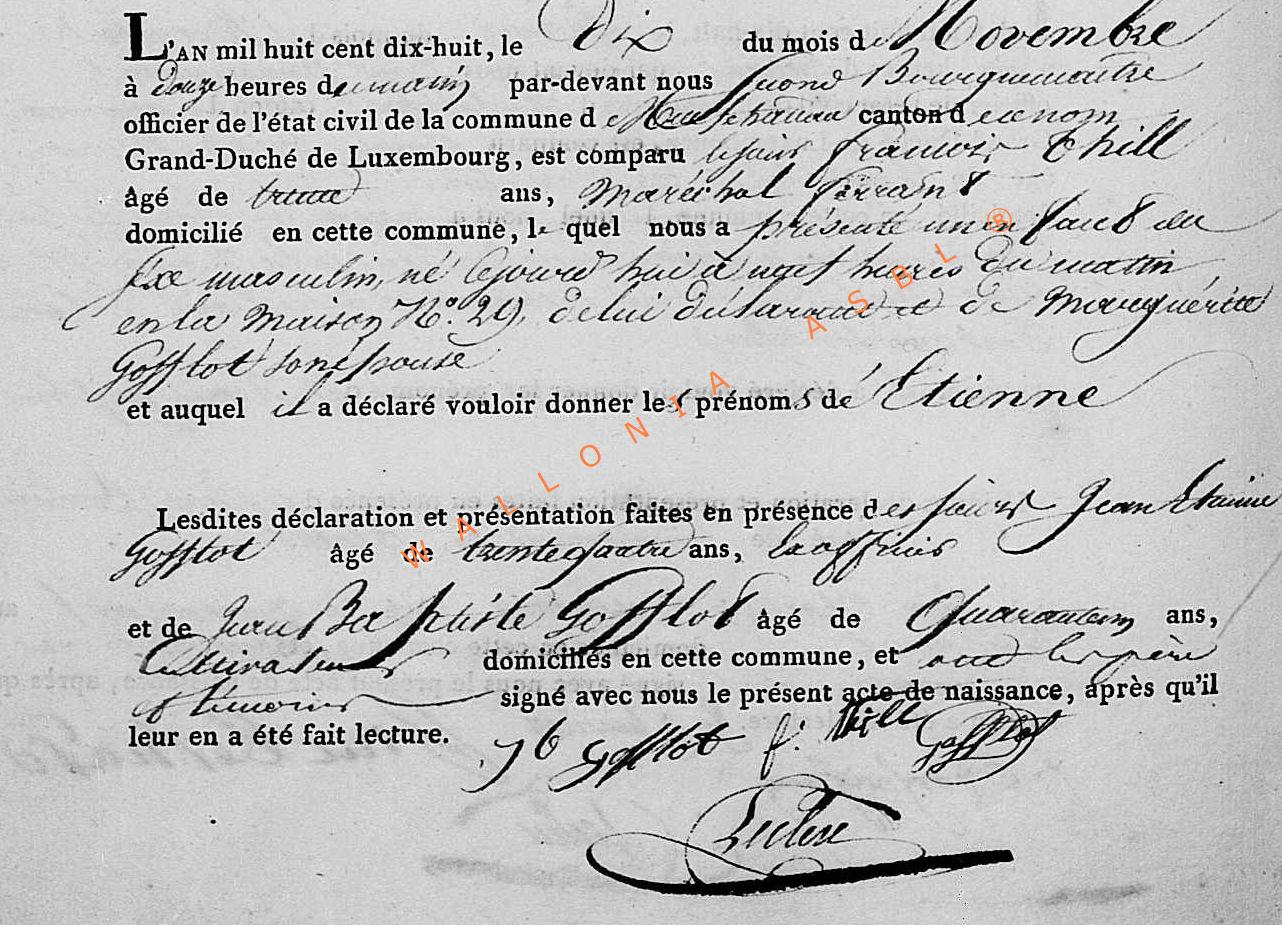 L'AN mil huit cent dix-huit, le Dix du mois de Novembre
à Douze heures du matin par-devant nous Second Bourguemaitre
officier de l'état civil de la commune de Neufchateau canton de ce nom
Grand-Duché de Luxembourg, est comparu le sieur François Thill
âgé de trente ans, Maréchal ferrant
domicilié en cette commune, le quel nous a présenté un enfant du
sexe masculin, né cejourd'hui à neuf heures du matin
en la Maison No. 29, de lui déclarant et de Marguérite
Gofflot son épouse
et auquel il a déclaré vouloir donner les prénoms de Etienne
Lesdites déclaration et présentation faites en présence des sieurs Jean Etienne
Gofflot âgé de trente quatre ans,
et de Jean Baptiste Gofflot âgé de Quarante un ans,
Cultivateur domiciliés en cette commune, et ont les père
et témoins signé avec nous le présent acte de naissance, après qu'il
leur en a été fait lecture.
Jb Gofflot f: thill Gofflot
WALLONIA ASBL ®